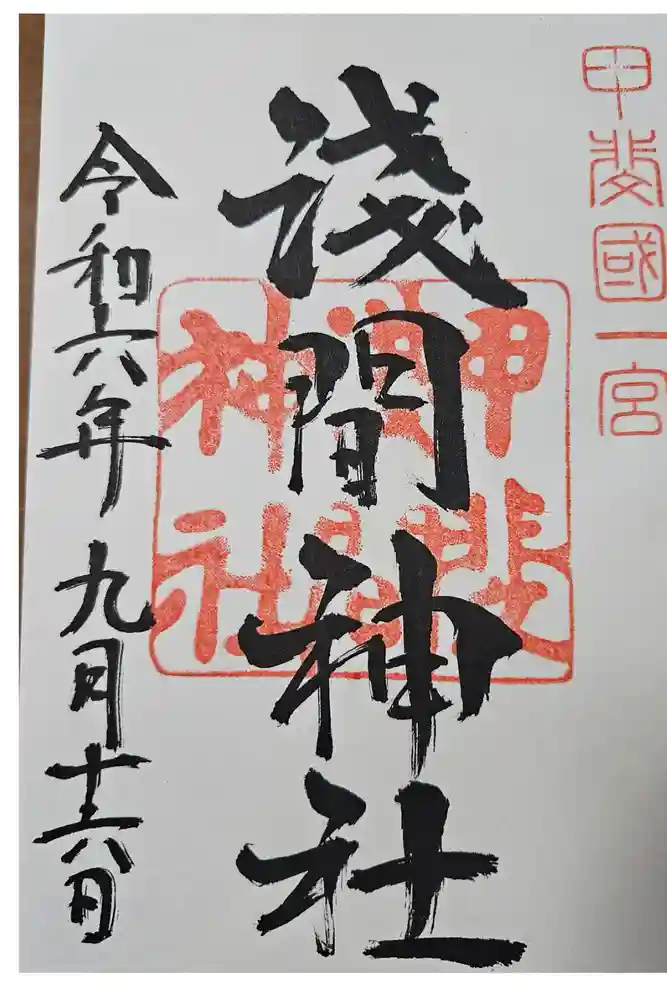 甲斐國一宮
淺間神社
甲斐
神社
令和六年 九月十六日